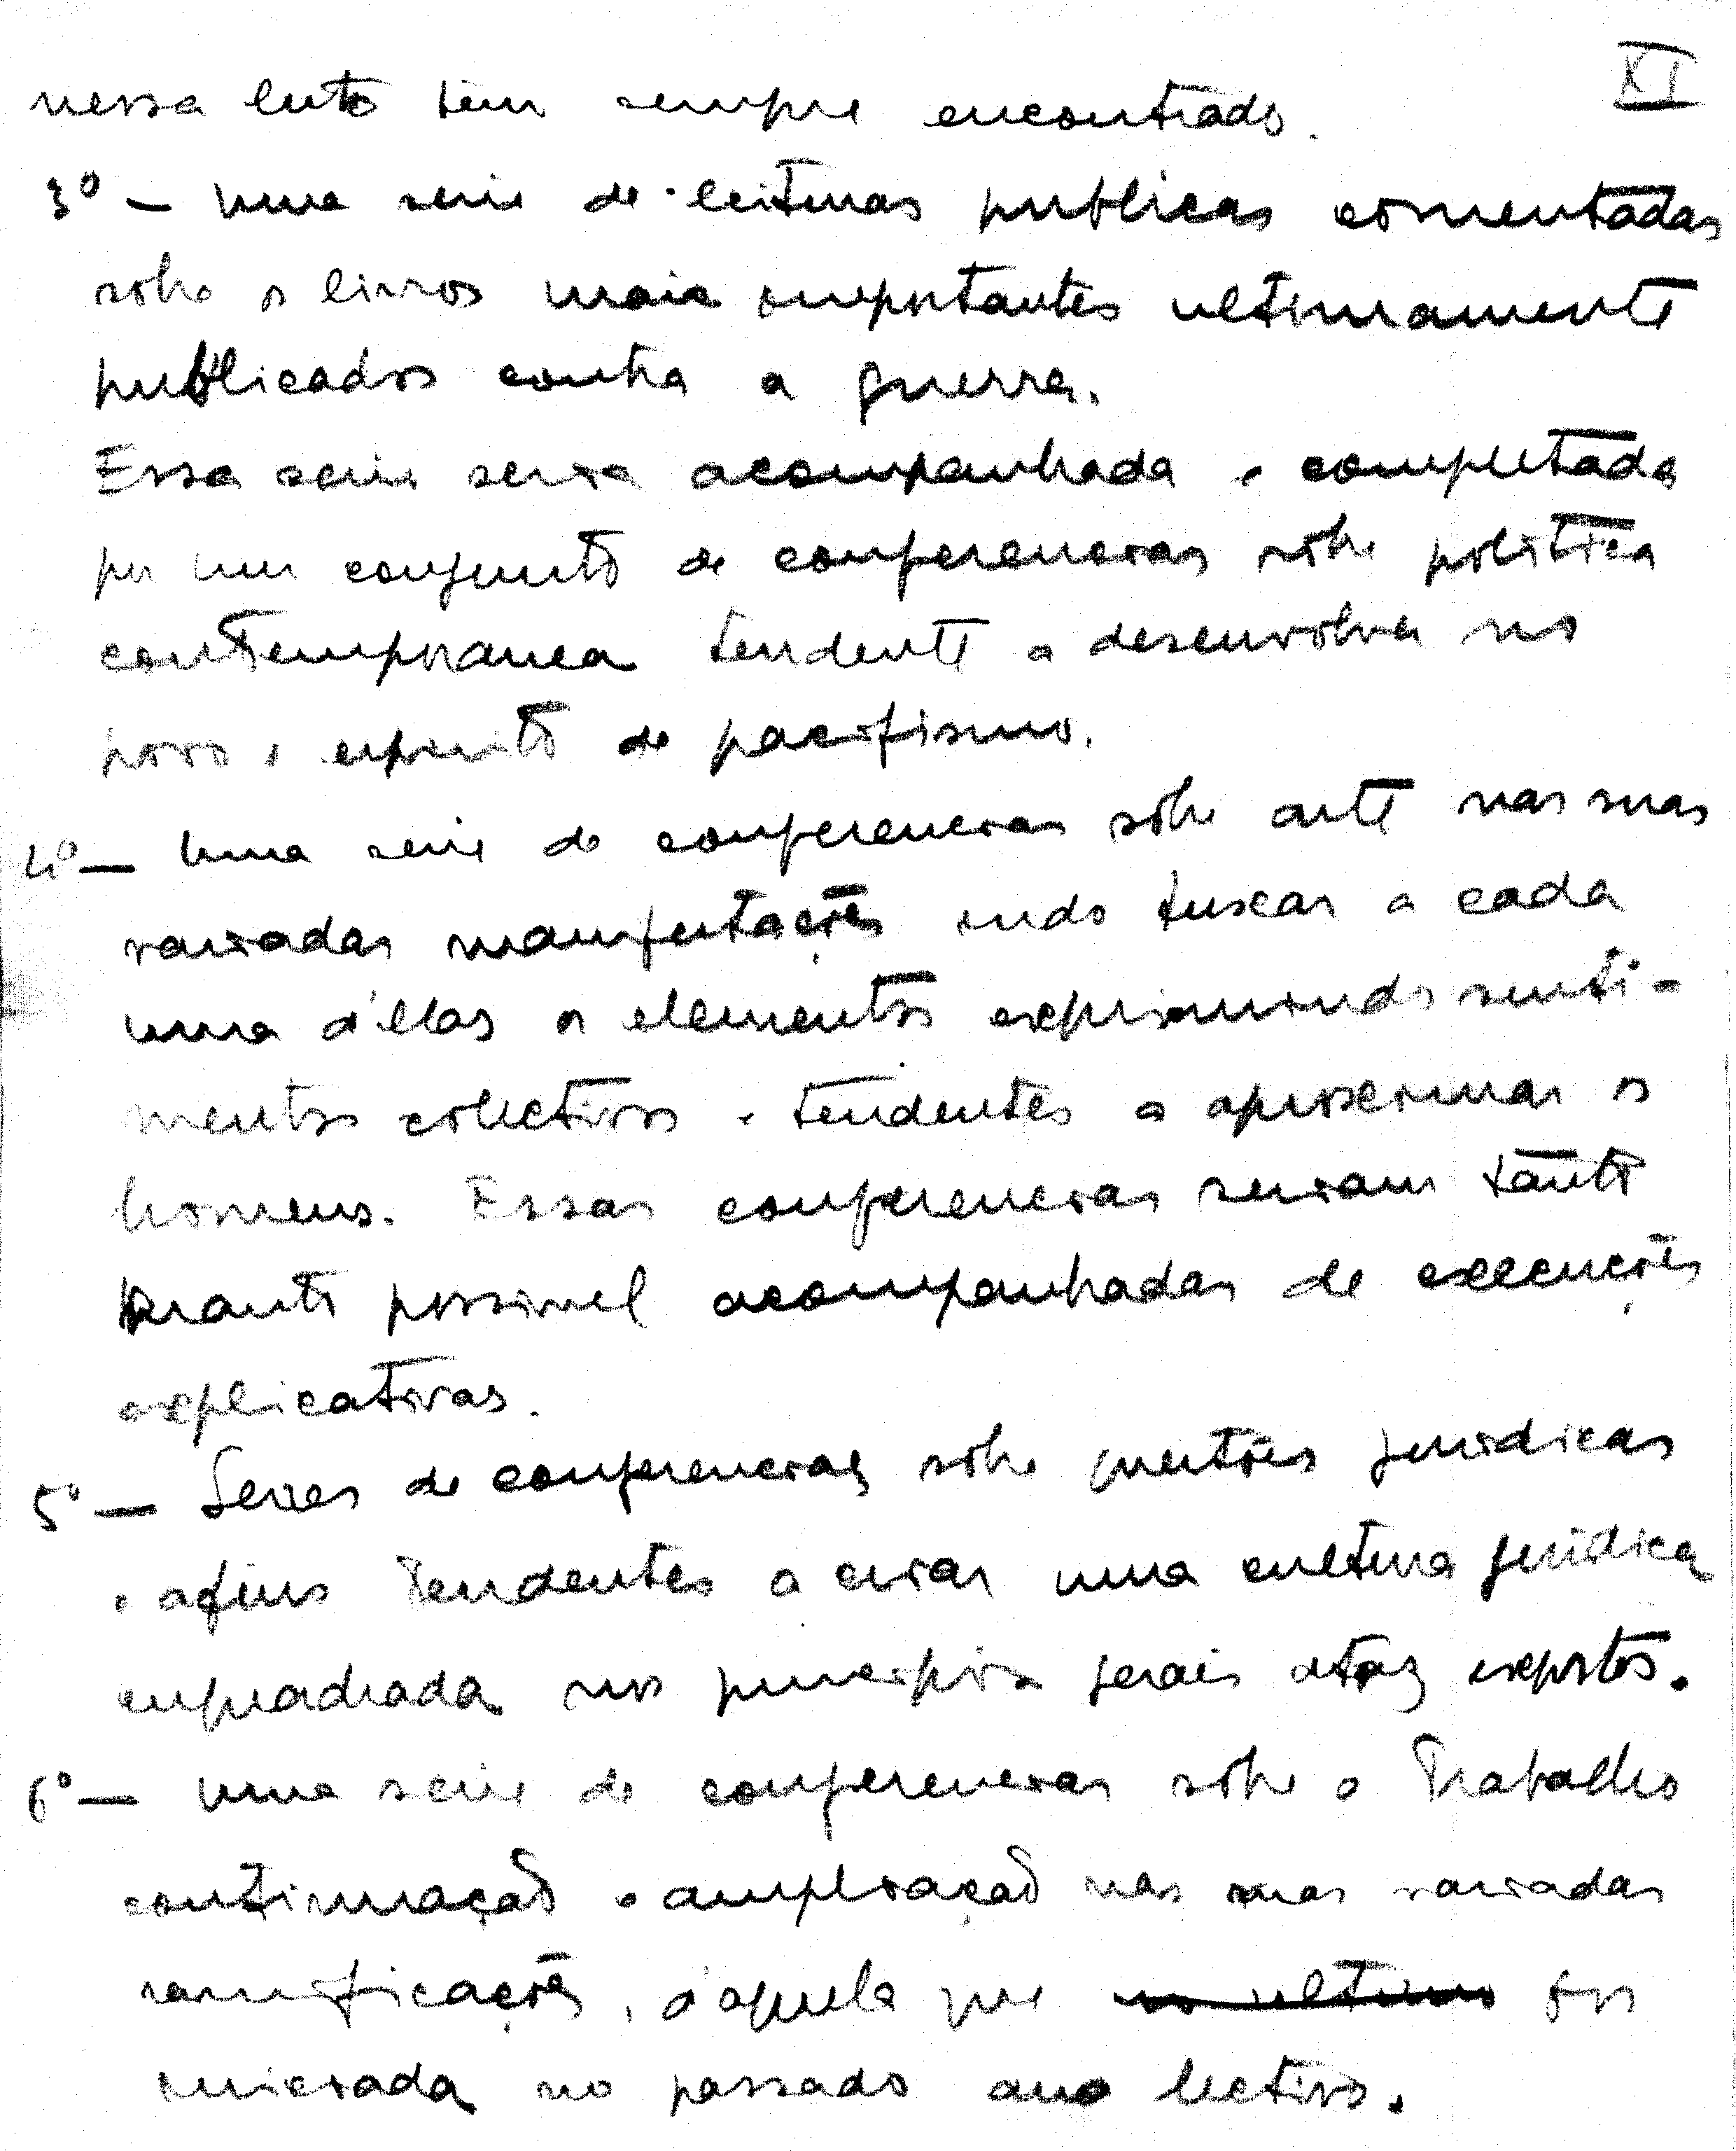 XI
nessa luta tem sempre encontrado.
3º — uma serie de leituras publicas comentadas
sobre os livros mais importantes ultimamente
publicados contra a guerra.
Essa serie seria acompanhada e completada
por um conjunto de conferencias sôbre politica
contemporanea tendente a desenvolver no
povo o espirito de pacifismo.
4º — Uma serie de conferencias sôbre arte nas suas
variadas manifestações indo buscar a cada
uma d'ellas os elementos exprimindo senti-
mentos collectivos e tendentes a aproximar os
homens. Essas conferencias seriam tanto
quanto possivel acompanhadas de execuções
explicativas.
5º — Series de conferencias sôbre questões juridicas
e afins tendentes a criar uma cultura juridica
enquadrada nos principios gerais atraz expostos.
6º — Uma serie de conferencias sôbre o Trabalho
continuação e ampliação nas suas variadas
ramificações, d'aquela que no ultimo foi
iniciada no passado ano lectivo.